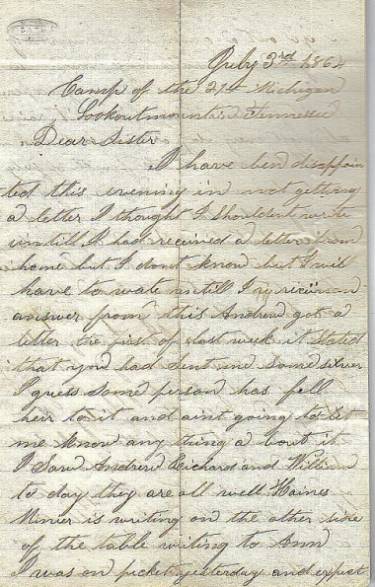 July 3rd 1864
Camp of the 21st Michigan
Lookoutmountain Tennessee
Dear Sister
I have bend disappoin
ted this evening in not getting
a letter I thought I shouldent write
untill I had received a letter from
home but I dont know but I will
have to wate untill I
answer from this Andrew got a
letter the first of last week it stated
that you had sent me some silver
I guess some person has fell
heir to it and aint going to let
me know any thing a bout it
I Saw Andrew Richard and William
to day they are all well Haines
Minier is writing on the other side
of the table writing to Ann
I was on picket yesterday and expect